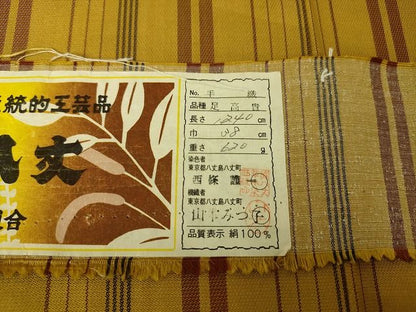 統的工芸品
丈
合
No. 手織
品種 足高貴
長さ 1240 cm
巾 38 cm
重さ 620 g
染色者
東京都八丈島八丈町
西條
機織者
東京都八丈島八丈町
山下みつ子
品質表示 絹100%